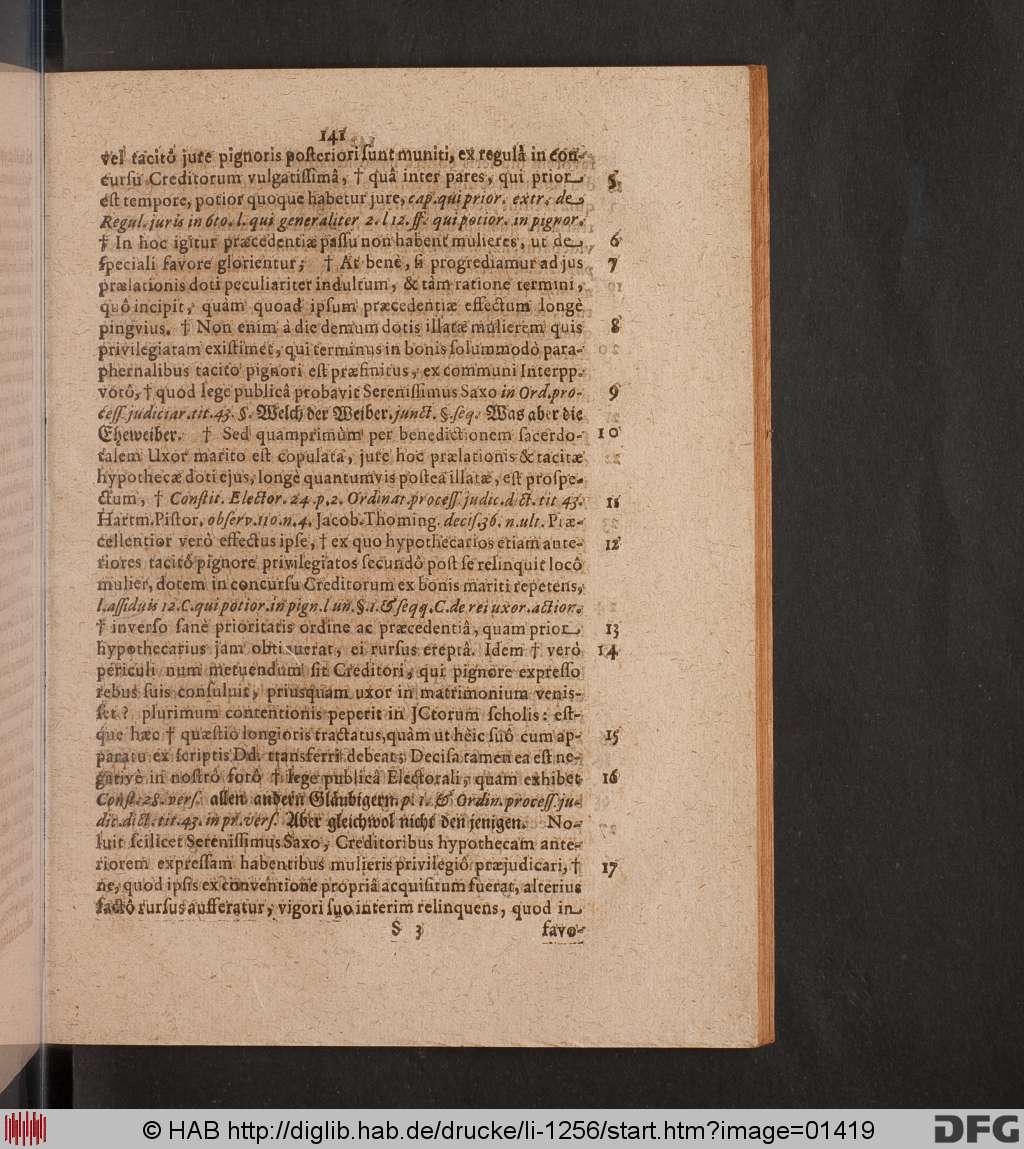 141
vel tacitô jure pignoris posteriori sunt muniti, ex regulâ in con-
cursu Creditorum vulgatissimâ, † quâ inter pares, qui prior 5
est tempore, potior quoque habetur jure, cap. qui prior. extr. de
Regul. juris in 6to. l. qui generaliter 2. l 12. ff. qui potior. in pignor.
† In hoc igitur præcedentiæ passu non habent mulieres, ut de 6
speciali favore glorientur; † At benè, si progrediamur ad jus 7
prælationis doti peculiariter indultum, & tàm ratione termini,
quô incipit, quàm quoad ipsum præcedentiæ effectum longè
pingvius. † Non enim à die demum dotis illatæ mulierem quis 8
privilegiatam existimet, qui terminus in bonis solummodò para-
phernalibus tacito pignori est præfinitus, ex communi Interpp.
votô, † quod lege publicâ probavit Serenissimus Saxo in Ord. pro- 9
cess. judiciar. tit. 43. §. Welch der Weiber. junct. §. seq. Was aber die
Eheweiber. † Sed quamprimùm per benedictionem sacerdo- 10
talem Uxor marito est copulata, jure hoc prælationis & tacitæ
hypothecæ doti ejus, longè quantumvis postea illatæ, est prospe-
ctum, † Constit. Elector. 24. p. 2. Ordinat. process. judic. dict. tit 43. 11
Hartm. Pistor. observ. 110. n. 4. Jacob. Thoming. decis. 36. n. ult. Præ-
cellentior verò effectus ipse, † ex quo hypothecarios etiam ante- 12
riores tacitô pignore privilegiatos secundô post se relinquit locô
mulier, dotem in concursu Creditorum ex bonis mariti repetens,
l. assiduis 12. C. qui potior. in pign. l un. §. 1. & seqq. C. de rei uxor. action.
† inverso sanè prioritatis ordine ac præcedentiâ, quam prior 13
hypothecarius jam obtinuerat, ei rursus ereptâ. Idem † verò 14
periculi num metuendum sit Creditori, qui pignore expresso
rebus suis consuluit, priusquam uxor in matrimonium venis-
set? plurimum contentionis peperit in JCtorum scholis: est-
que hæc † quæstio longioris tractatus, quàm ut hèic suô cum ap- 15
paratu ex scriptis Dd. transferri debeat; Decisa tamen ea est ne-
gativè in nostrô forô † lege publicâ Electorali, quam exhibet 16
Const. 28. vers. allen andern Gläubigern. p. 1. & Ordin. process. ju-
dic. dict. tit. 43. in pr. vers. Aber gleichwol nicht den jenigen. No-
luit scilicet Serenissimus Saxo, Creditoribus hypothecam ante-
riorem expressam habentibus mulieris privilegiô præjudicari, † 17
ne, quod ipsis ex conventione propriâ acquisitum fuerat, alterius
factô rursus aufferatur, vigori suo interim relinquens, quod in
S 3 favo-
© HAB http://diglib.hab.de/drucke/li-1256/start.htm?image=01419
DFG